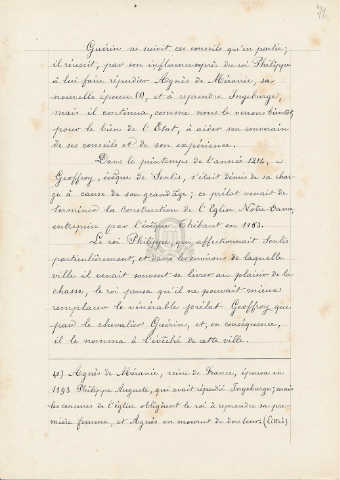 Guérin ne suivit ces conseils qu'en partie;
il réussit, par son influence auprès du roi Philippe
à lui faire répudier Agnès de Méranie, sa
nouvelle épouse (1), et à reprendre Ingeburge,
mais il continua, comme nous le verrons bientôt,
pour le bien de l'État, à aider son souverain
de ses conseils et de son expérience.
Dans le printemps de l'année 1214,
Geoffroy, évêque de Senlis, s'était démis de sa char-
ge à cause de son grand âge; ce prélat venait de
terminer la construction de l'Église Notre-Dame,
entreprise par l'évêque Thibaut en 1183.
Le roi Philippe, qui affectionnait Senlis
particulièrement, et dans les environs de laquelle
ville il venait souvent se livrer au plaisir de la
chasse, le roi pensa qu'il ne pouvait mieux
remplacer le vénérable prélat Geoffroy que
par le chevalier Guérin, et, en conséquence,
il le nomma à l'évêché de cette ville.
(1) Agnès de Méranie, reine de France, épousa en
1193 Philippe Auguste, qui avait répudié Ingeburge; mais
les censures de l'église obligèrent le roi à reprendre sa pre-
mière femme, et Agnès en mourut de douleur. (Littré)